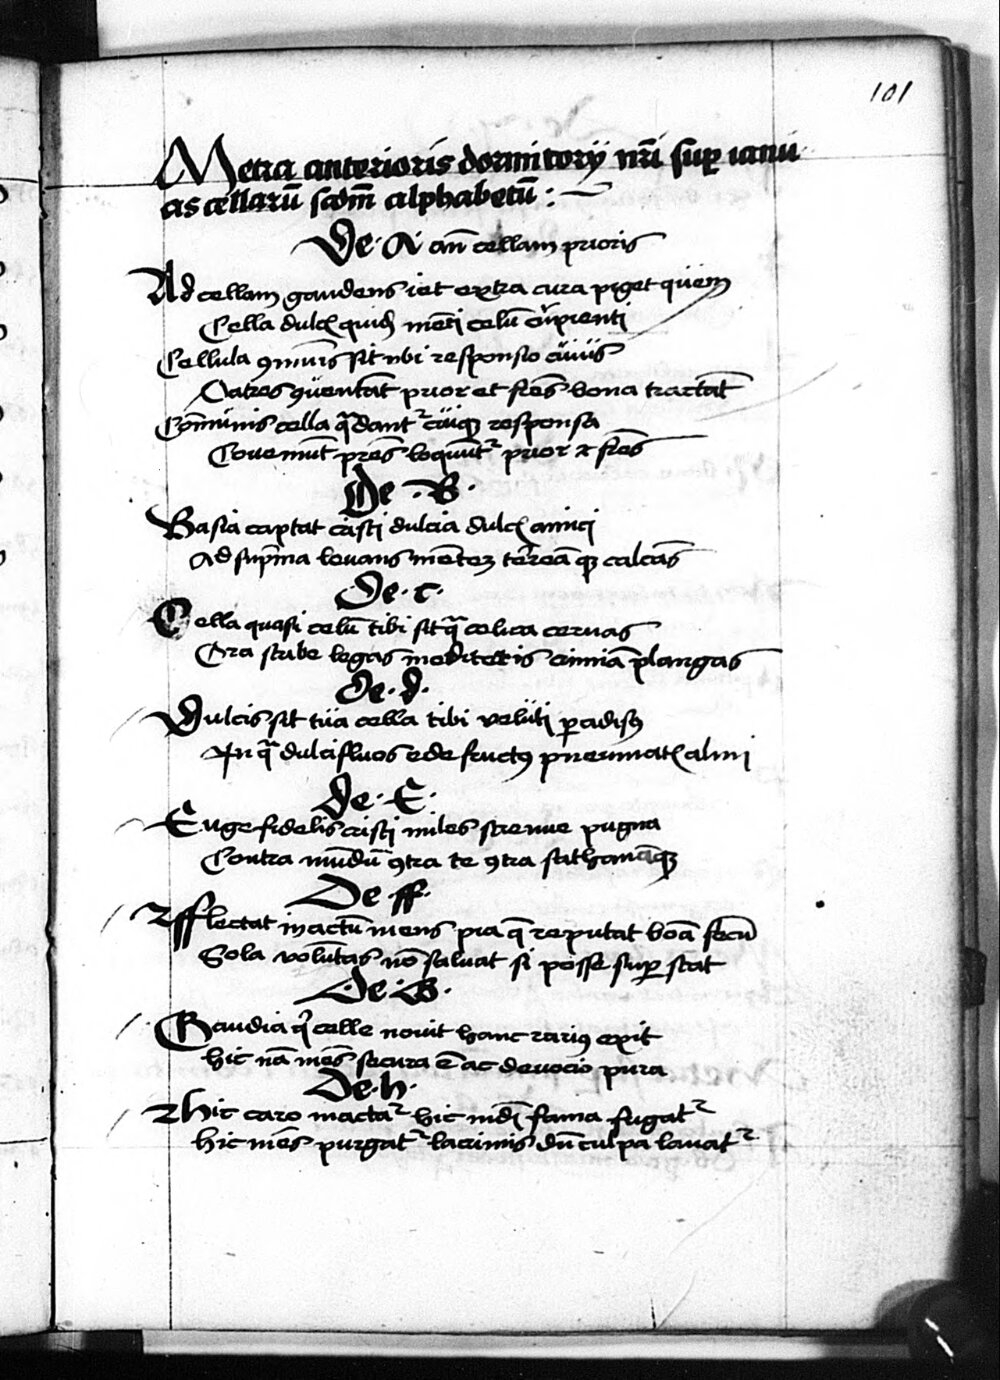 101
Metra anterioris dormitorij nr̄i sup̱ ianu
as cellarū scdm̄ alphabetū :
De · A · an̄ cellam prioris
Ad cellam gaudens iet extra cura piget quem
Cella dulcꝭ quid mēti celū cupienti
Cellula ꝯmūis sit ubi responsio cuiuis
Patres ꝯuentāt prior et fr̄es bona tractāt
Cōmunis cella q̄ dant᷑ cuiqꝫ responsa
Conueniūt pr̄es loquūt᷑ prior ⁊ fr̄es
De · B ·
Basia captat cristi dulcia dulcꝭ amici
Ad supma leuans mētez terreāqꝫ calcās
De · c ·
Cella quasi celū tibi sit q̄ celica cernas
Ora scribe legas mediteris crimīa plangas
De · d ·
Dulcis sit tua cella tibi veluti ꝑadisꝯ
In q̄ dulcifluos ede fructꝯ pneumatꝭ almi
De · E ·
Euge fidelis cristi miles strenue pugna
Contra mūdū ꝯtra te ꝯtra sathanāqꝫ
De ff ·
Fflectat in actū mens pia q̄ reputat bonā secū
Sola volūtas nō saluat si posse sup̱ stat
De · G ·
Gaudia q̄ celle nouit hanc rariꝯ exit
hic nā mēs secura ē ac deuocio pura
De · h ·
Hhic caro mactat᷑ hic mūdi fama fugat᷑
hic mēs purgat᷑ lacrimis dū culpa lauat᷑